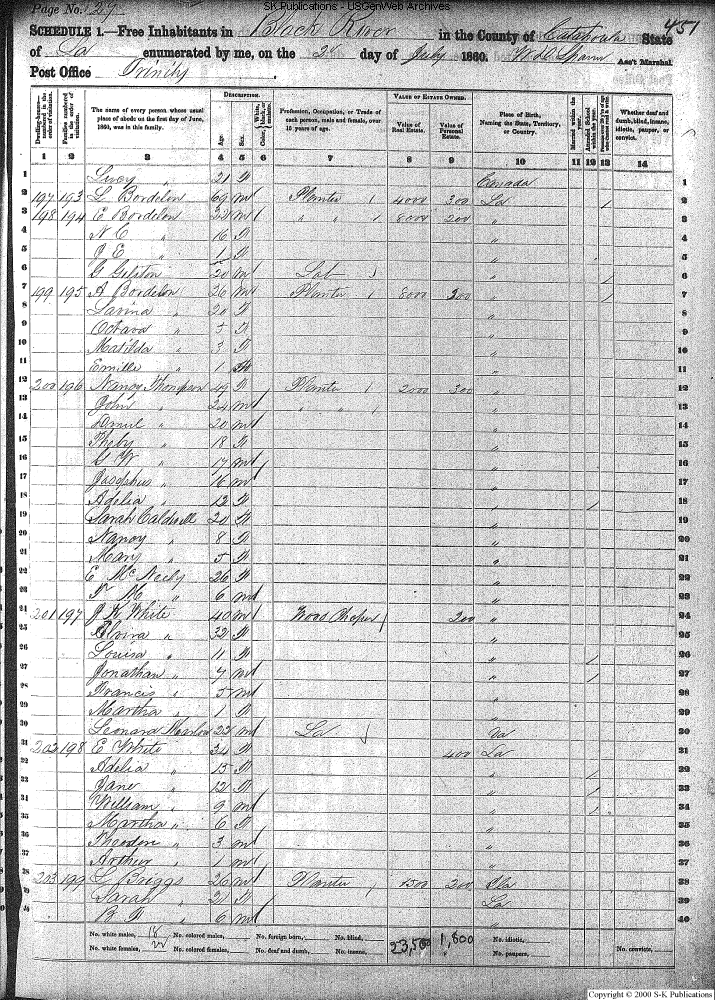 SK Publications - USGenWeb Archives
Page No. 129
451
SCHEDULE 1.—Free Inhabitants in Black River in the County of Catahoula State
of La enumerated by me, on the 2 day of July 1860. Ass't Marshal
Post Office Trinity
Dwelling-houses—numbered in the order of visitation.
Families numbered in the order of visitation.
The name of every person whose usual place of abode on the first day of June, 1860, was in this family.
DESCRIPTION.
Age. Sex. Color,
Profession, Occupation, or Trade of each person, male and female, over 15 years of age.
VALUE OF ESTATE OWNED.
Value of Real Estate. Value of Personal Estate.
Place of Birth, Naming the State, Territory, or Country.
Married within the year.
Attended School within the year.
Whether deaf and dumb, blind, insane, idiotic, pauper, or convict.
1 2 3 4 5 6 7 8 9 10 11 12 13 14
1 Lucy " 21 F Canada 1
2 197 193 L Bordelon 69 m Planter 4000 300 La 2
3 198 194 E Bordelon 22 m " " 8000 200 " 3
4 N C " 16 F " 4
5 J E " 1 F " 5
6 G Gelston 20 m Lab " 6
7 199 195 A Bordelon 26 m Planter 8000 300 " 7
8 " 20 F " 8
9 Octava " 5 F " 9
10 Matilda " 3 F " 10
11 Emille " 1 " 11
12 200 196 Nancy Thompson 49 F Planter 2000 300 " 12
13 John " 24 m " " " 13
14 " 20 m " 14
15 Pheby " 18 F " 15
16 G W " 17 m " 16
17 Josephus " 16 m " 17
18 Adelia " 12 F " 18
19 Sarah Caldwell 20 F " 19
20 Nancy " 8 F " 20
21 Mary " 5 F " 21
22 E McNeely 26 F " 22
23 F M " 6 m " 23
24 201 197 J H White 40 m Wood Choper 200 " 24
25 Elvira " 32 F " 25
26 Louisa " 11 F " 26
27 Jonathan " 7 m " 27
28 Francis " 5 m " 28
29 Martha " 1 F " 29
30 Leonard 22 m La 30
31 202 198 E White 34 F 400 La 31
32 Adelia " 15 F " 32
33 Jane " 12 F " 33
34 William " 9 m " 34
35 Martha " 6 F " 35
36 Theodore " 3 m " 36
37 Arthur " 1 m " 37
38 203 199 L Briggs 26 m Planter 1500 200 38
39 Sarah " 21 F La 39
40 " 6 m " 40
No. white males, 18 No. colored males, No. foreign born, No. blind, 23,500 1,800 No. idiotic,
No. white females, 22 No. colored females, No. deaf and dumb, No. insane, No. paupers, No. convicts,
Copyright © 2000 S-K Publications